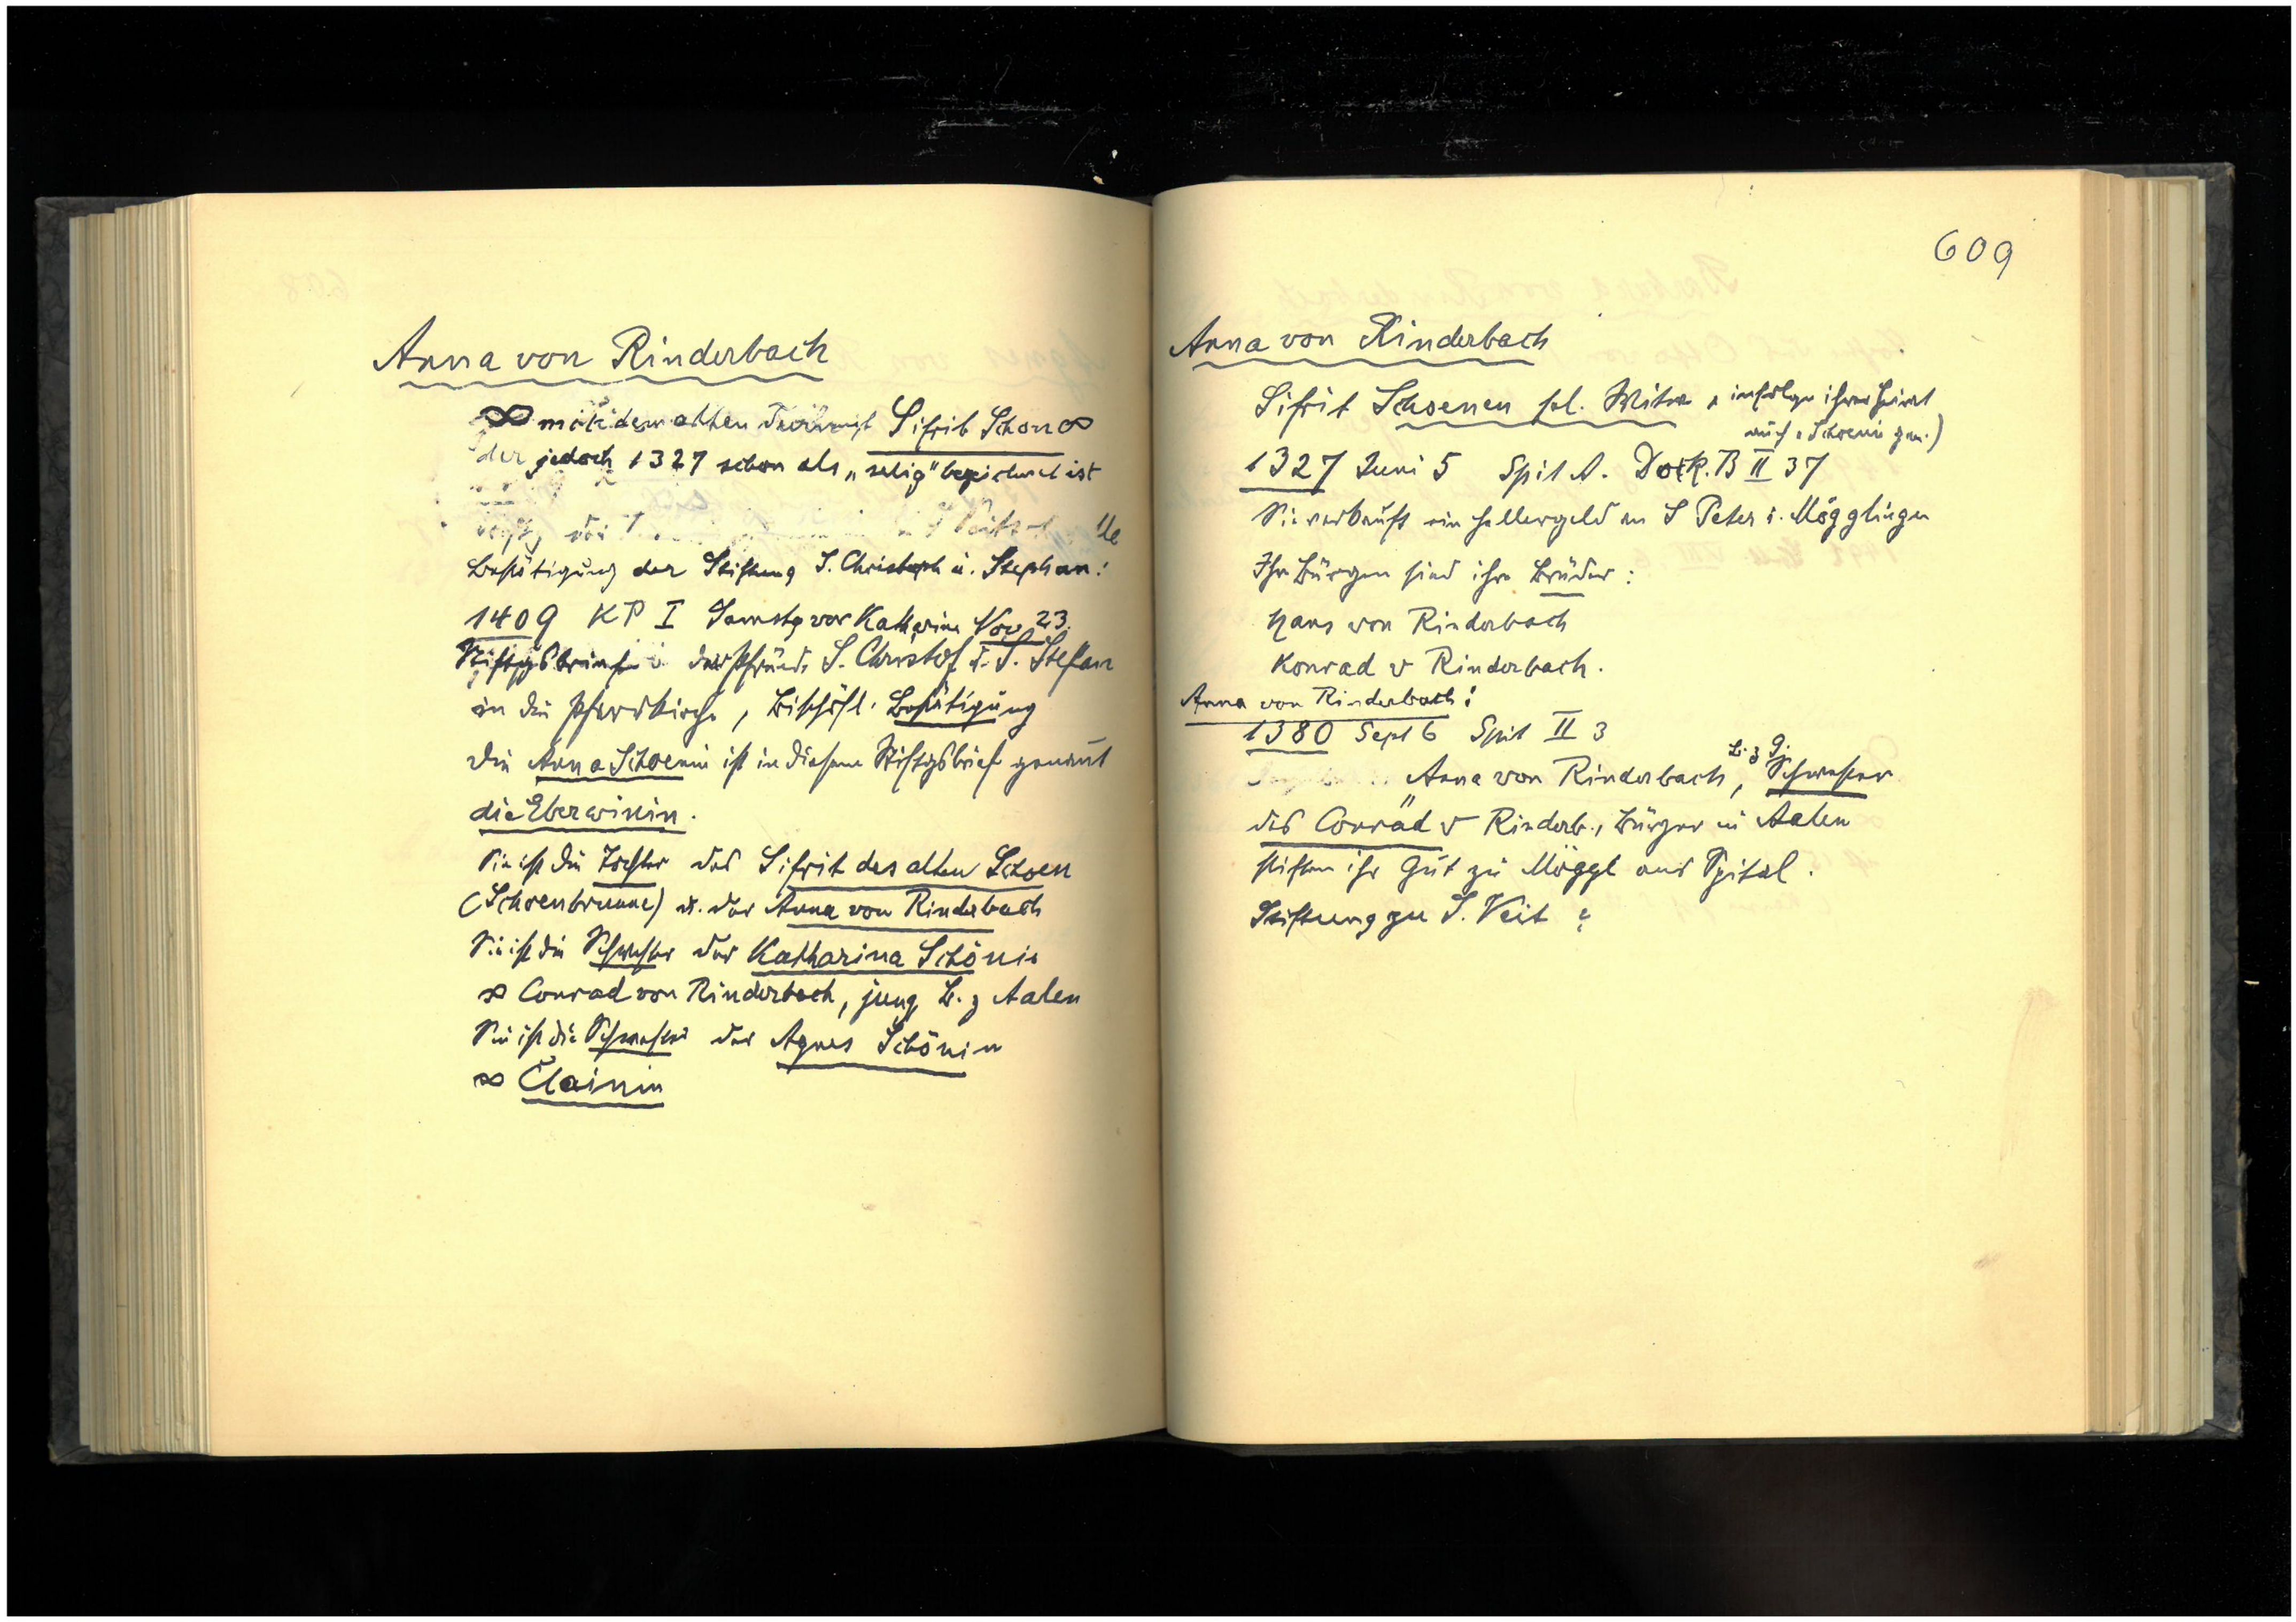 Anna von Rinderbach
∞ mit dem alten Sifrit Schon ∞
der jedoch 1327 schon als „selig" bezeichnet ist
Bestätigung der Stiftung S. Christoph u. Stephan:
1409 KP I Samstg vor Katharina Nov 23.
Stiftgsbrief der Pfründe S. Christof u. S. Stefan
in die Pfarrkirche, Bischöfl. Bestätigung
Die Anna Schoenin ist in diesem Stiftgsbrief genannt
die Eberwinin.
Sie ist die Tochter des Sifrit des alten Schoen
(Schoenbrunne) u. der Anna von Rinderbach
Sie ist die Schwester der Katharina Schönin
∞ Conrad von Rinderbach, jung B. z Aalen
Sie ist die Schwester der Agnes Schönin
∞ Clainin
609
Anna von Rinderbach
Sifrit Schoenen sel. Witwe, infolge ihrer Heirat
auch „Schoenin gen.)
1327 Juni 5 Spit A. Dock. B II 37
Sie verkauft ein Hellergeld an S Peter i. Mögglingen
Ihr Bürgen sind ihre Brüder:
Hans von Rinderbach
Konrad v Rinderbach.
Anna von Rinderbach:
1380 Sept 6 Spit II 3
Anna von Rinderbach, B. z Gj. Schwester
des Conrad v Rinderb., Bürger in Aalen
stiften ihr Gut zu Möggl ans Spital.
Stiftung zu S. Veit ?